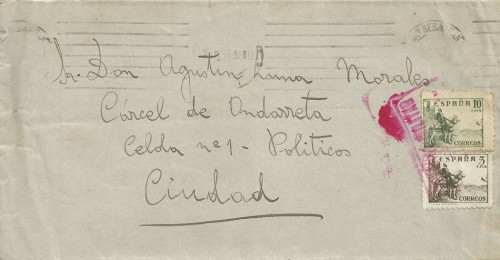 Sr. Don Agustin Luna Morales
Cárcel de Ondarreta
Celda nº 1 - Politicos
Ciudad
ESPAÑA
10
CTS
CORREOS
ESPAÑA
5
CTS
CORREOS